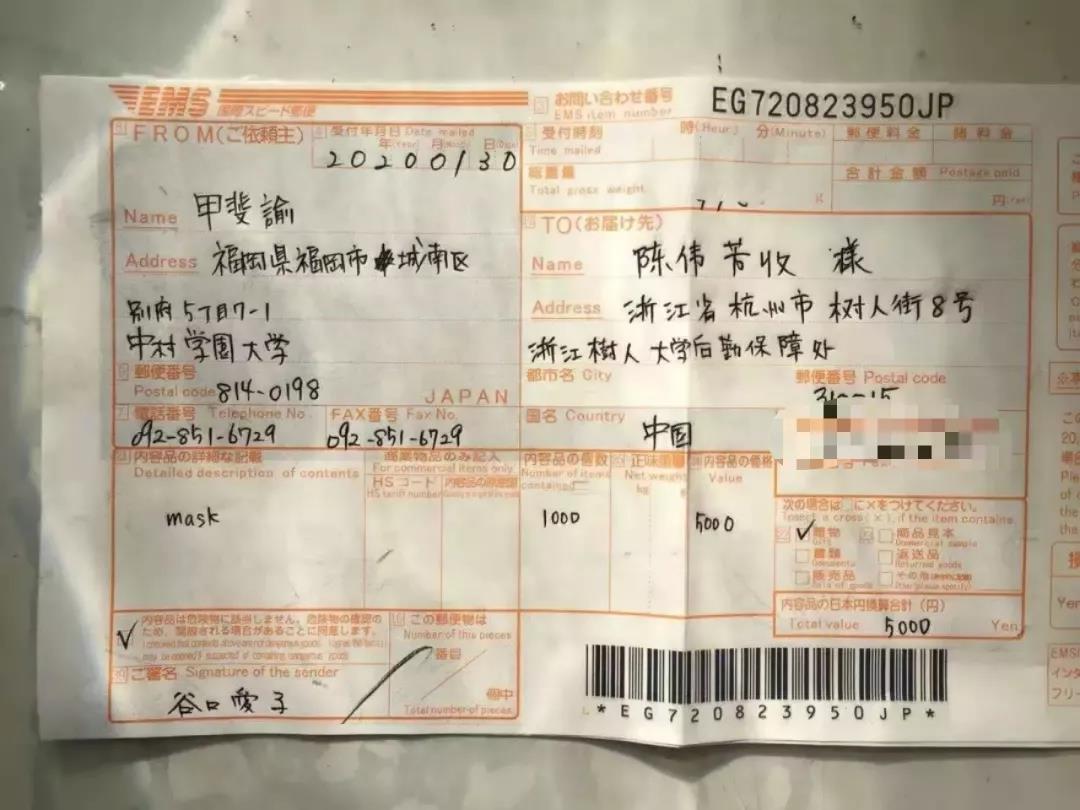 EMS 国際スピード郵便
お問い合わせ番号
EMS item number
EG720823950JP
FROM (ご依頼主)
受付年月日 Date mailed
年(Year) 月(Month) 日(Day)
20200130
Name 甲斐諭
Address 福岡県福岡市城南区
別府5丁目7-1
中村学園大学
郵便番号
Postal code 814-0198
JAPAN
電話番号 Telephone No.
092-851-6729
FAX番号 Fax No.
092-851-6729
受付時刻 時(Hour) 分(Minute)
Time mailed
郵便料金 諸料金
総重量
Total gross weight
合計金額 Postage paid
円
TO (お届け先)
Name 陈伟芳收 様
Address 浙江省杭州市树人街8号
浙江树人大学后勤保障处
都市名 City
郵便番号 Postal code
国名 Country 中国
内容品の詳細な記載
Detailed description of contents
商業物品のみ記入
For commercial items only
HSコード
HS tariff number
内容品の個数
Number of items contained
正味重量
Net weight
kg
内容品の価格
Value
mask 1000 5000
次の場合は□に×をつけてください。
Insert a cross (×), if the item contains.
贈物
Gifts
商品見本
Commercial sample
書類
Documents
返送品
Returned goods
販売品
Sale of goods
その他
内容品の日本円換算合計 (円)
Total value 5000 Yen
内容品は危険物に該当しません。危険物の確認の
ため、開披される場合があることに同意します。
この郵便物は
Number of this pieces
番目
個中
Total number of pieces
ご署名 Signature of the sender
谷口愛子
*EG720823950JP*